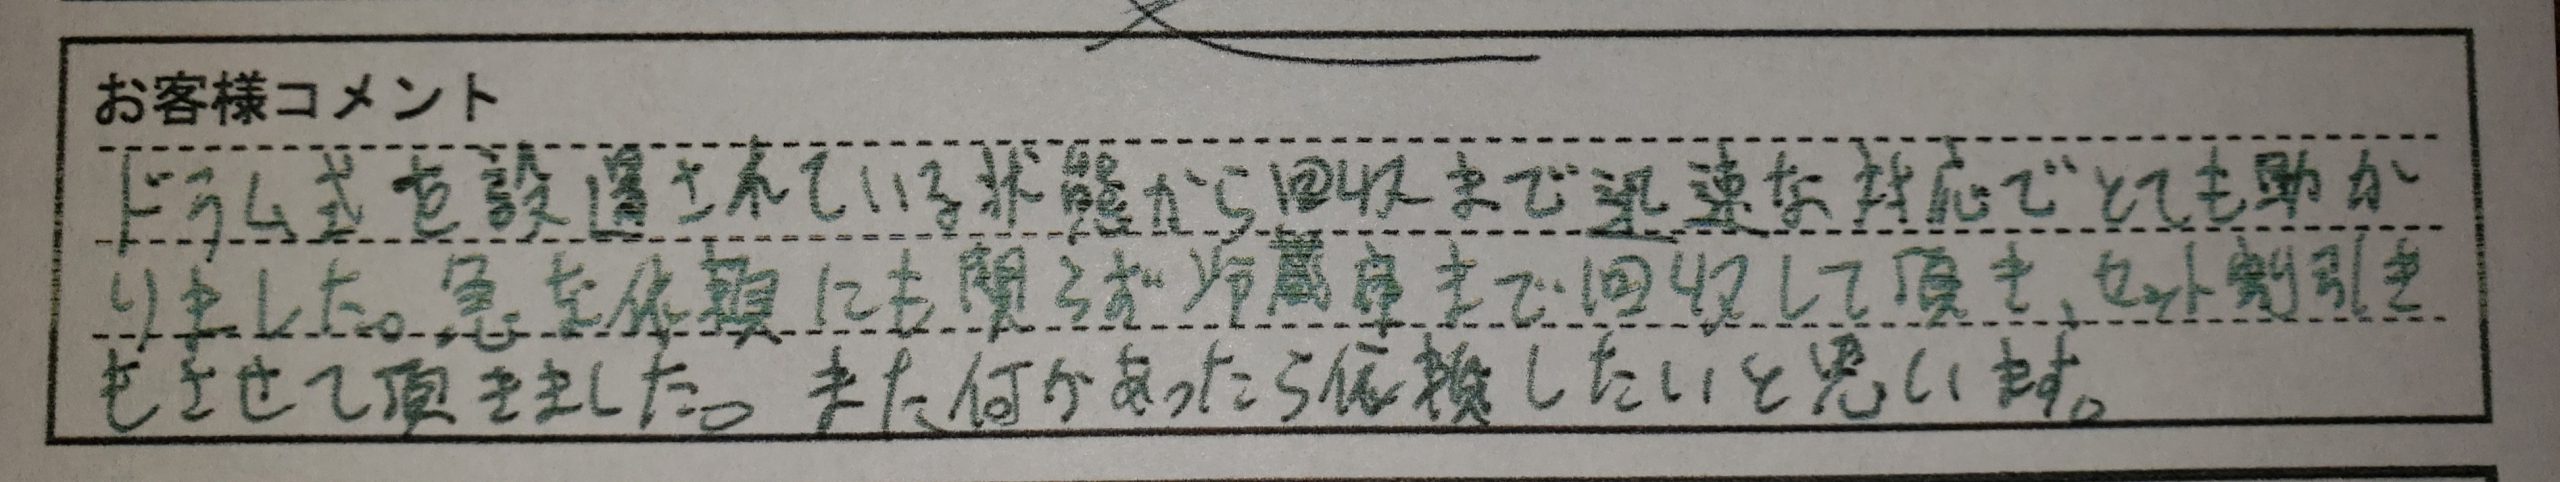 お客様コメント
ドラム式を設置されている状態から回収まで迅速な対応でとても助か
りました。急な依頼にも関らず冷蔵庫まで回収して頂き、セット割引き
もさせて頂きました。また何かあったら依頼したいと思います。